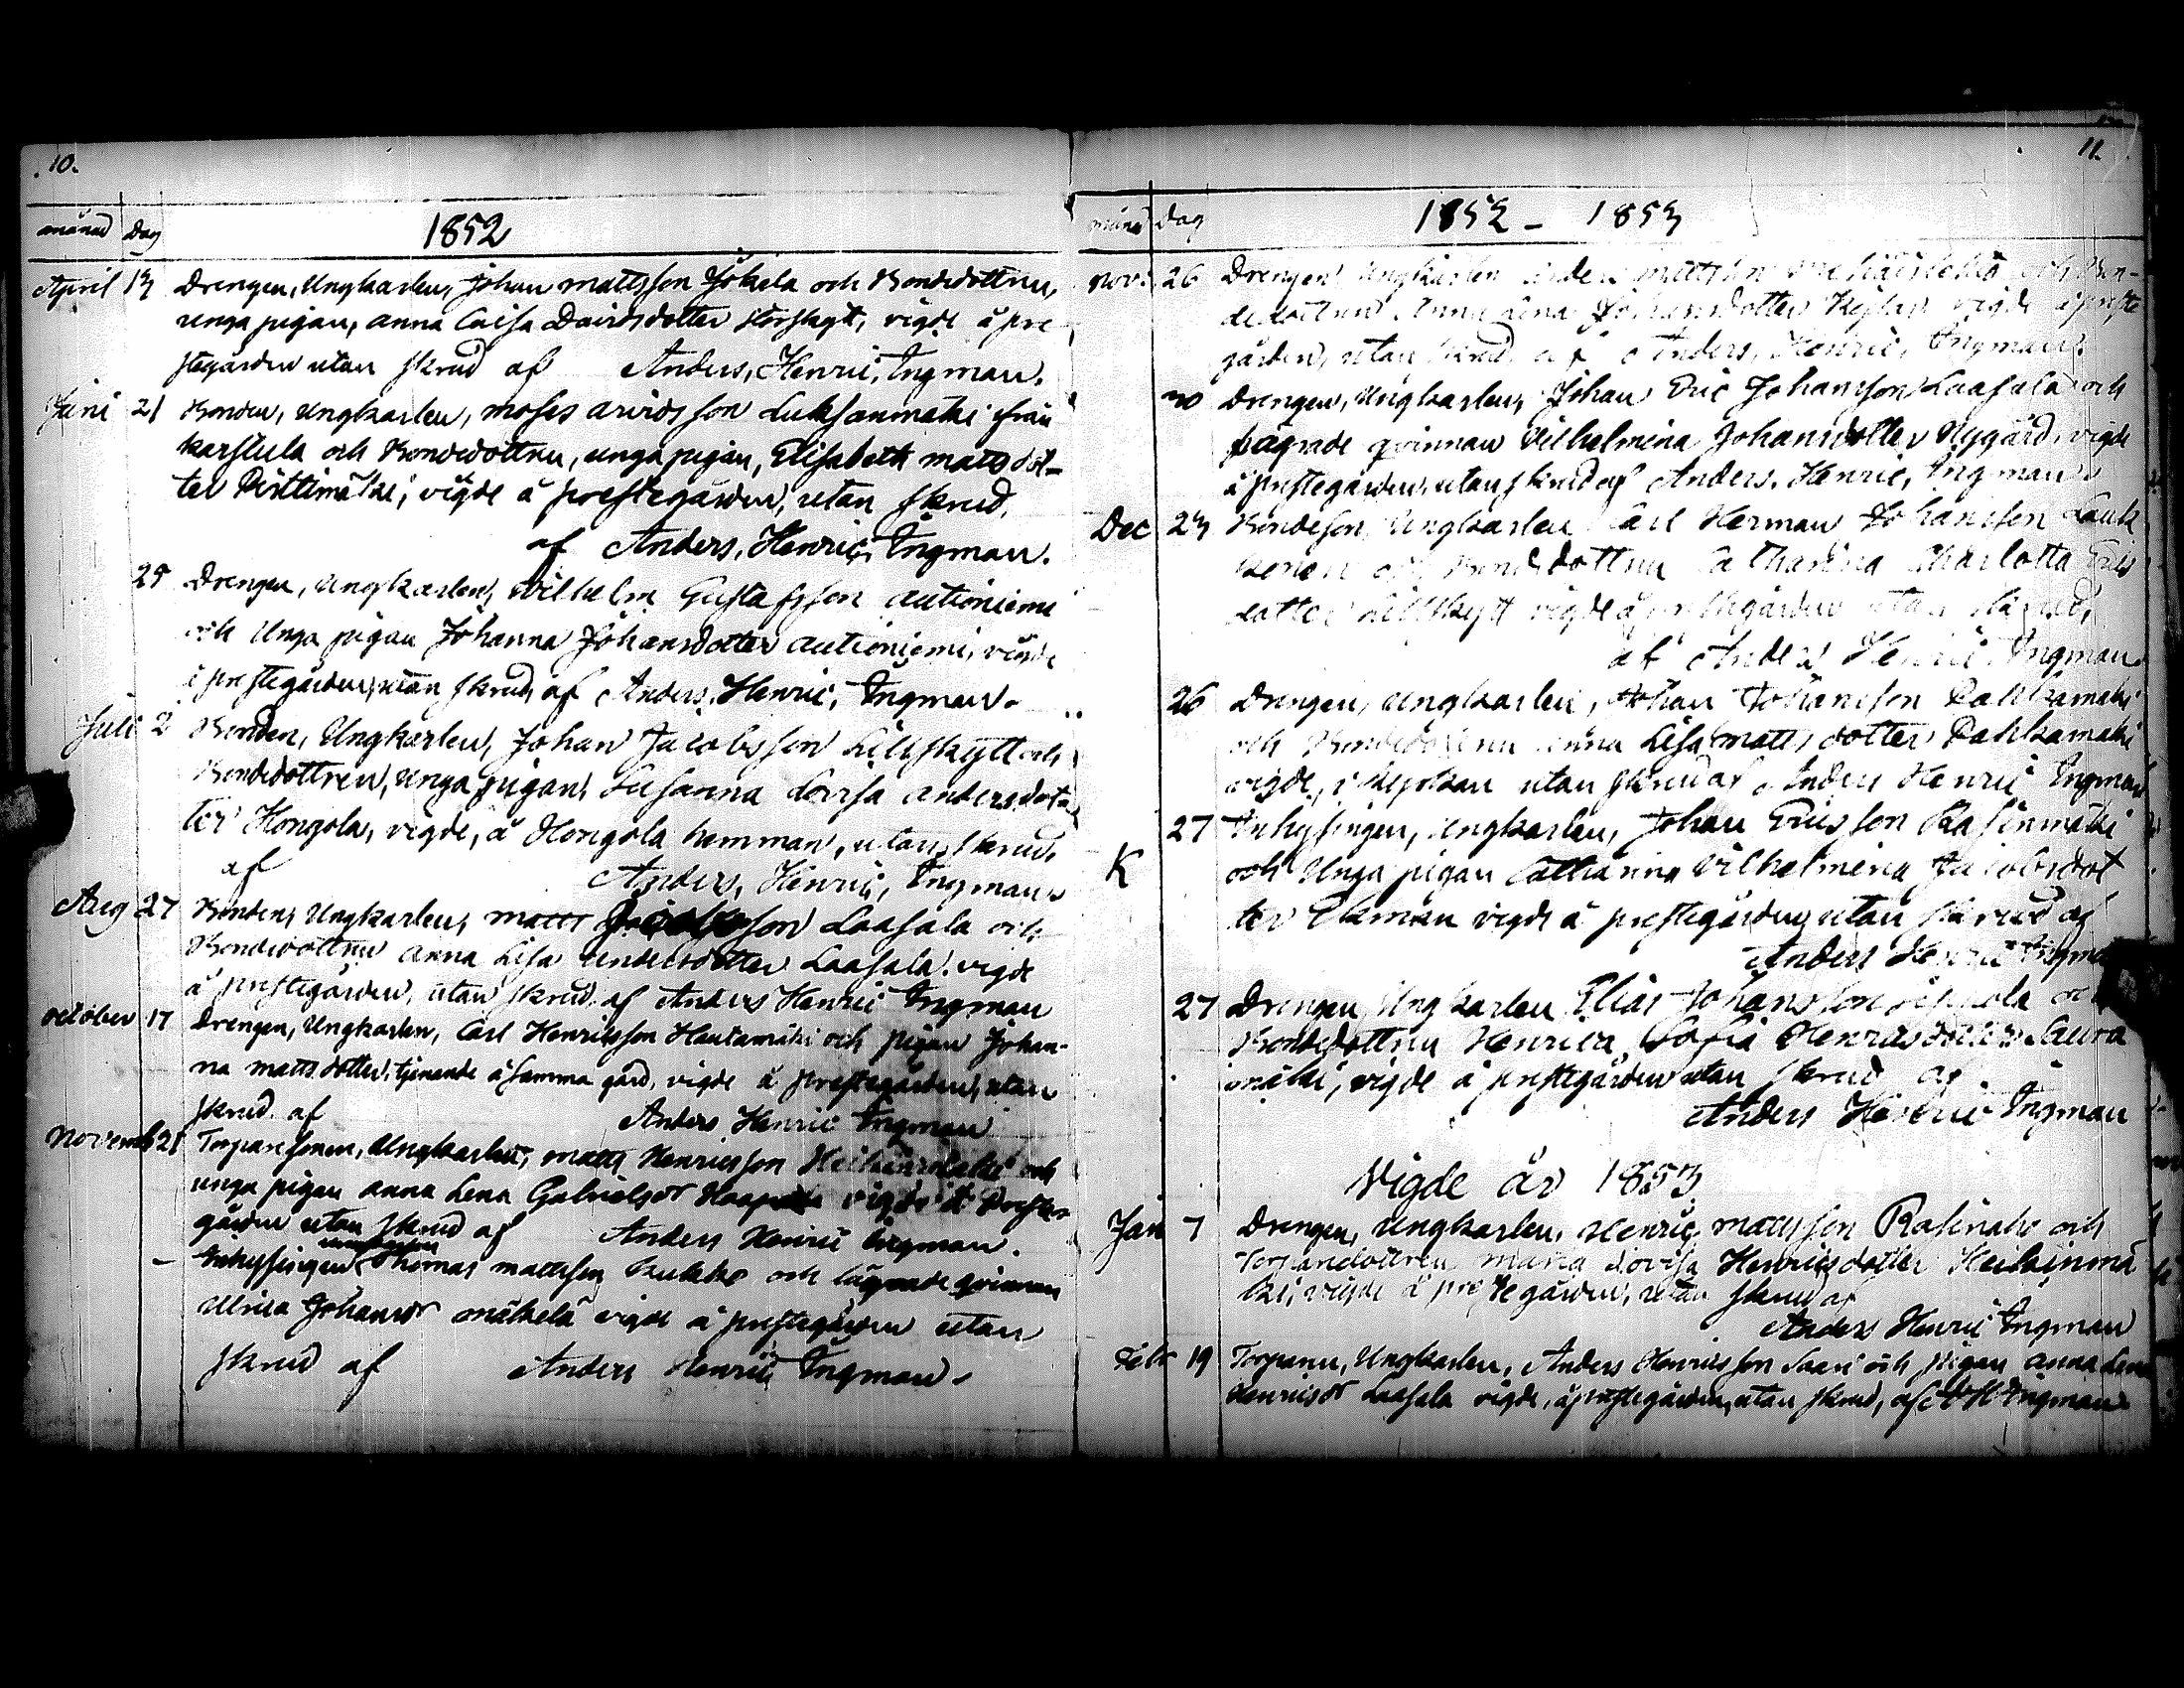 10.
månad Dag 1852
April 13 Drengen, Ungkarlen, Johan mattsson Jokela och Bondedottren,
unga pigan, anna Caisa Davidsdotter Storskytt, vigde å pre
stegården utan skrud af Anders, Henric, Ingman.
Juni 21 Bonden, Ungkarlen, moses arvidsson Luksanmäki från
karstula och Bondedottren, unga pigan, Elisabeth mats dot-
ter Pirttimäki, vigde å prestegården, utan skrud,
af Anders, Henric, Ingman.
25 Drengen, Ungkarlen, Wilhelm Gustafsson autioniemi
och Unga pigan Johanna Johansdotter autioniemi, vigde
å prestegården, utan skrud, af Anders, Henric, Ingman.
Juli 2 Bonden, Ungkarlen, Johan Jacobsson Lillskytt och
Bondedottren, unga pigan, Susanna Lovisa anders dot
ter Hongola, vigde, å Hongola hemman, utan skrud,
af Anders, Henric, Ingman
Aug 27 Bonden, Ungkarlen, matts Laasala och
Bondedottren anna Lisa andersdotter Laasala. vigde
å prestegården, utan skrud, af Anders Henric Ingman
october 17 Drengen, Ungkarlen, Carl Henriksson Hautamäki och pigan Johan-
na matts dotter, tjenande å samma gård, vigde å prestegården, utan
skrud af Anders Henric Ingman
Novemb 21 Torparesonen, Ungkarlen, matts Henricsson och
unga pigan anna Lena Gabrielsdr vigde å Preste
gården utan skrud af Anders Henric Ingman.
– Inhysingen Thomas mattsson Kukko och lägrade qvinnan
Ulrica Johansdr mäkelä vigde å prestegården utan
skrud af Anders Henric Ingman.
11.
månd Dag 1852 – 1853
nov. 26 Drengen Ungkarlen Anders mattsson och Bon-
dedottren Anna Lena Johansdotter vigde å preste
gården, utan skrud af Anders, Henric, Ingman.
30 Drengen, Ungkarlen, Johan Eric Johansson Laasala och
lägrade qvinnan Vilhelmina Johansdotter Nygård, vigde
å prestegården, utan skrud af Anders, Henric, Ingman
Dec 23 Bondeson, Ungkarlen Carl Herman Johansson Lauk
konen och Bondedottren Catharina Charlotta Erics
dotter Lillskytt vigde å prestegården utan skrud,
af Anders Henric Ingman
26 Drengen, Ungkarlen, Johan Johansson Pahkamäki
och Bondedottren anna Lisa matts dotter Pahkamäki
vigde, i kyrkan utan skrud af Anders Henric Ingman
27 Inhysingen, Ungkarlen, Johan Ericsson Rasinmäki
K och Unga pigan Catharina Vilhelmina Jacobsdot
ter Ekman vigde å prestegården utan skrud af
Anders Henric Ingman
27 Drengen, Ungkarlen Elias Johansson och
Bondedottren Henrica Sofia Henricsdotter Saura
mäki, vigde å prestegården utan skrud af
Anders Henric Ingman
Vigde år 1853
Jan 7 Drengen, Ungkarlen, Henric mattsson Rasinaho och
Torparedottren maria Lovisa Henricsdotter Heikinmä
ki, vigde å prestegården, utan skrud af
Anders Henric Ingman
Feb 19 Torparen, Ungkarlen, Anders Henricsson Saari och pigan anna Lena
Henricsdr Laasala vigde, å prestegården, utan skrud, af A H Ingman